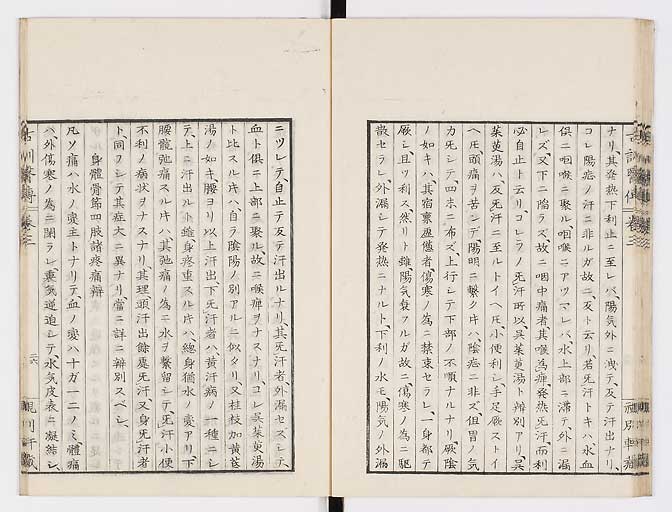 ナリ、其発熱下利止ニ至レバ、陽気外ニ洩テ、反テ汗出ナリ、
コレ陽症ノ汗ニ非ルガ故ニ、反ト云リ、若死汗トキハ、水血
倶ニ咽喉ニ聚ル、咽喉ニアツマレバ、水上部ニ滞テ、外ニ漏
レズ、又下ニ陥ラズ、故ニ咽中痛者、其喉為痺、発熱死汗、而利
必自止ト云リ、コレラノ死汗所以呉茱萸湯ト辨別アリ、呉
茱萸湯ハ、反死汗ニ至ルトイヘ𪜈、小便利シ手足厥ストイ
ヘ𪜈、頭痛ヲ苦シンデ、陽明ニ繋クキハ、陰症ニ非ズ、但胃ノ気
力死シテ、四末ニ布ズ、上行シテ下部ノ不順ナルナリ、厥陰
ノ如キハ、其宿稟虚憊者、傷寒ノ為ニ禁束セラレ、一身都テ
厥シ、且ツ利ス、然リト雖陽気發スルガ故ニ、傷寒ノ為ニ駆
散セラレ、外漏シテ発熱ニナルト、下利ノ水モ陽気ノ外漏
ニツレテ、自止テ反テ汗出ルナリ、其死汗者、外漏セズシテ、
血ト倶ニ上部ニ聚ル、故ニ喉痺ヲナスナリ、コレ呉茱萸湯
ト比スルキハ、自ラ陰陽ノ別アルニ似タリ、又桂枝加黄芪
湯ノ如キ、腰ヨリ以上汗出、下死汗者ハ、黄汗病ノ一種ニシ
テ、上ニ汗出ルト雖、身疼重スルキハ、総身猶水ノ変アリ、下
腰髖弛痛スルキハ、其弛痛ノ為ニ水ヲ繋留シテ、死汗小便
不利ノ病状ヲナスナリ、其理頭汗出餘處死汗、又身死汗者
ト、同フシテ其症大ニ異ナリ、當ニ詳ニ辨別スベシ、
身體骨節四肢諸疼痛辨
凡ソ痛ハ水ノ変主トナリテ、血ノ変ハ十ガ一二ノミ、體痛
ハ、外傷寒ノ為ニ閉ラレ、裏気逆迫シテ、水気皮表ニ凝結シ、